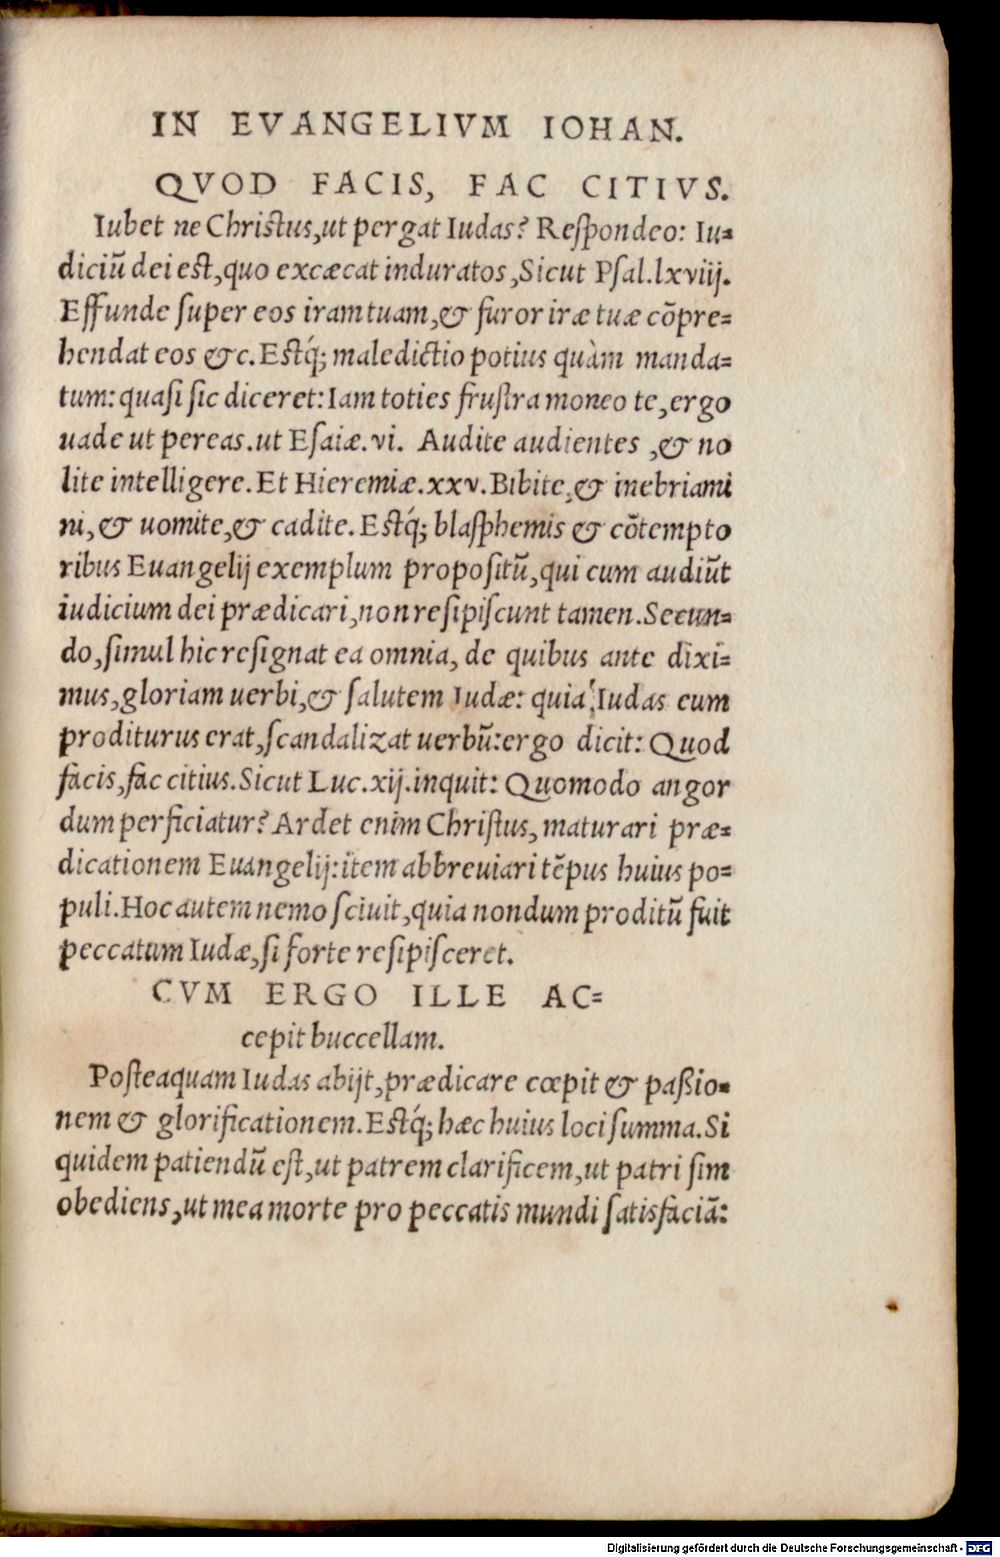 IN EVANGELIVM IOHAN.
QVOD FACIS, FAC CITIVS.
Iubet ne Christus, ut pergat Iudas? Respondeo: Iu=
diciũ dei est, quo excæcat induratos, Sicut Psal. lxviij.
Effunde super eos iram tuam, & furor iræ tuæ cõpre=
hendat eos &c. Estq́; maledictio potius quàm manda=
tum: quasi sic diceret: Iam toties frustra moneo te, ergo
uade ut pereas. ut Esaiæ. vi. Audite audientes, & no
lite intelligere. Et Hieremiæ. xxv. Bibite, & inebriami
ni, & uomite, & cadite. Estq́; blasphemis & cõtempto
ribus Euangelij exemplum propositũ, qui cum audiũt
iudicium dei prædicari, non resipiscunt tamen. Secun=
do, simul hic resignat ea omnia, de quibus ante dixi=
mus, gloriam uerbi, & salutem Iudæ: quia Iudas cum
proditurus erat, scandalizat uerbũ: ergo dicit: Quod
facis, fac citius. Sicut Luc. xij. inquit: Quomodo angor
dum perficiatur? Ardet enim Christus, maturari præ=
dicationem Euangelij: item abbreuiari tẽpus huius po=
puli. Hoc autem nemo sciuit, quia nondum proditũ fuit
peccatum Iudæ, si forte resipisceret.
CVM ERGO ILLE AC=
cepit buccellam.
Posteaquam Iudas abijt, prædicare cœpit & paßio=
nem & glorificationem. Estq́; hæc huius loci summa. Si
quidem patiendũ est, ut patrem clarificem, ut patri sim
obediens, ut mea morte pro peccatis mundi satisfaciã:
Digitalisierung gefördert durch die Deutsche Forschungsgemeinschaft - DFG